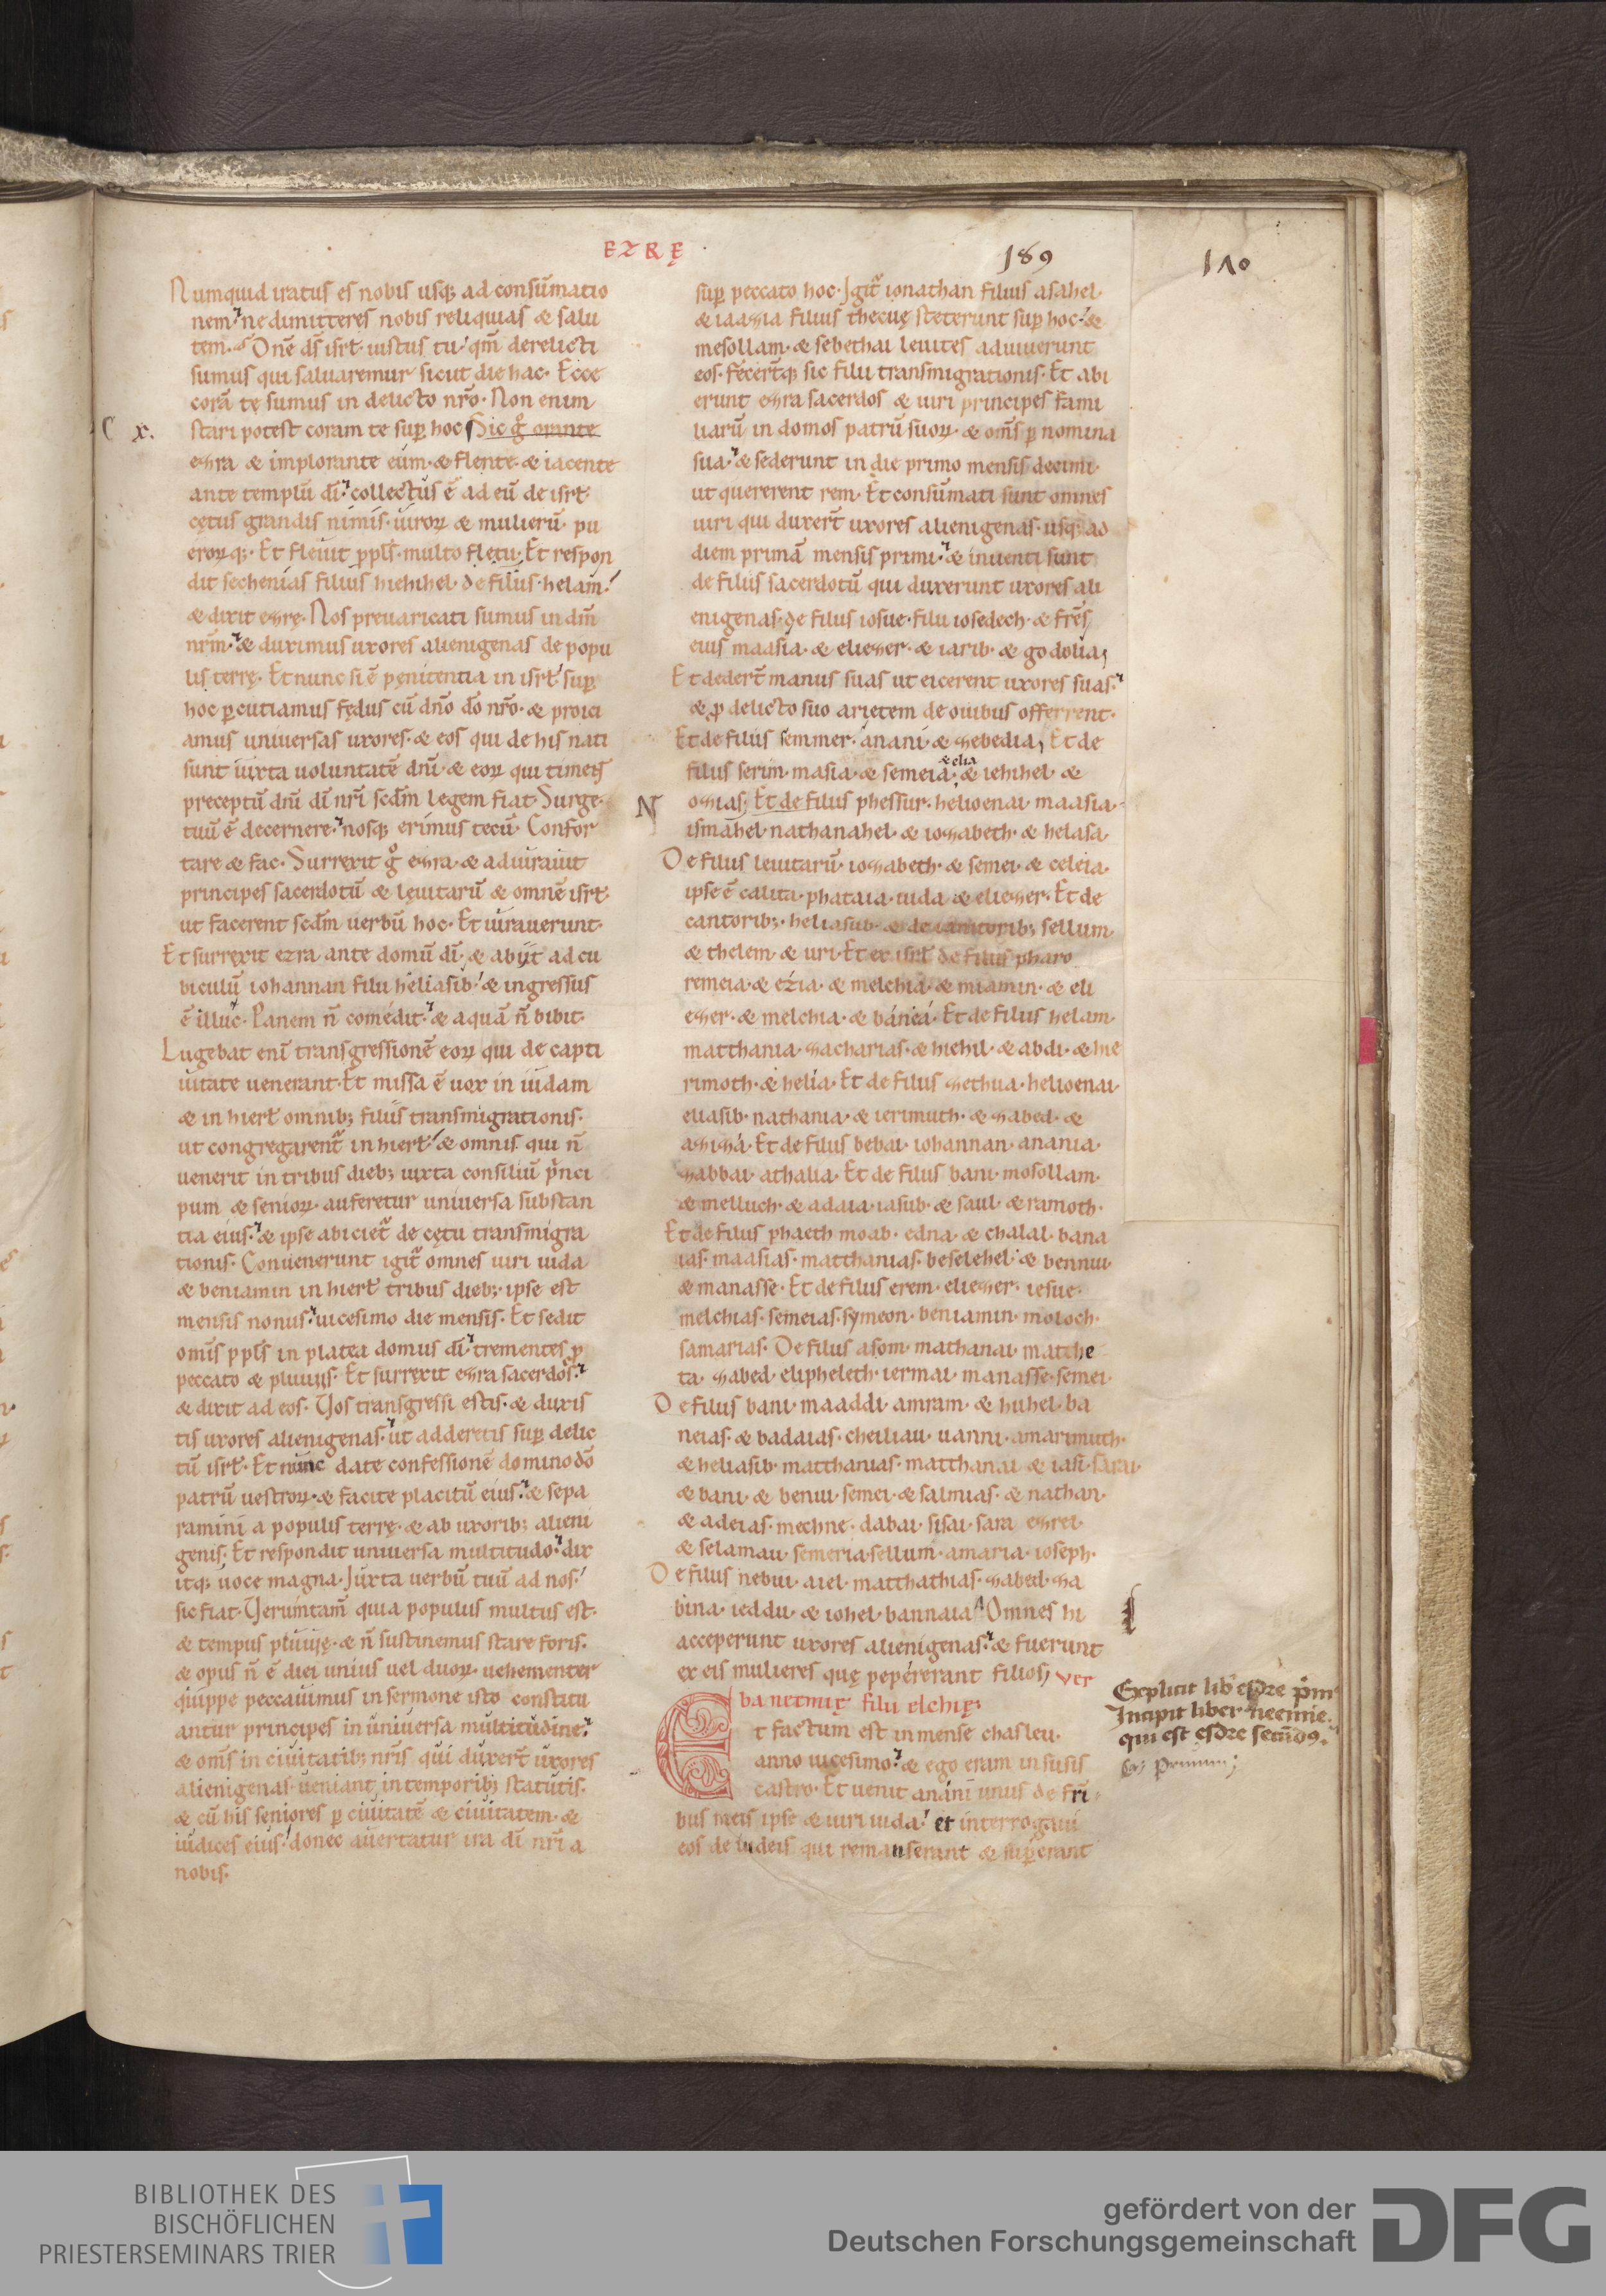 EZRĘ
189
110
Numquid iratus es nobis usq; ad consūmatio
nem. ne dimitteres nobis reliquias & salu
tem. Dn̄e ds̄ isrł. iustus tu. qm̄ derelicti
sumus qui saluaremur sicut die hac. Ecce
corā te sumus in delicto nr̄o. Non enim
C x.
stari potest coram te sup hoc. Sic g° orante
esra & implorante eum. & flente. & iacente
ante templū dī. collectus ē ad eū de isrł
cętus grandis nimis. uiroꝝ & mulierū. pu
eroꝝq;. Et fleuit ppłs. multo fletu. Et respon
dit sechenias filius hiehihel. de filiis. helam.
& dixit esrę. Nos preuaricati sumus in dm̄
nr̄m. & duximus uxores alienigenas de popu
lis terrę. Et nunc si ē pęnitentia in isrł sup
hoc ꝑcutiamus fędus cū dn̄o dō nr̄o. & proici
amus uniuersas uxores. & eos qui de his nati
sunt iuxta uoluntatē dn̄i. & eoꝝ qui timent
preceptū dn̄i dī nr̄i scd̄m legem fiat. Surge.
tuū ē decernere. nosq; erimus tecū. Confor
tare & fac. Surrexit g° esra. & adiurauit
principes sacerdotū & lęuitarū & omnē isrł.
ut facerent scd̄m uerbū hoc. Et iurauerunt.
Et surrexit ezra ante domū dī. & abiit ad cu
biculū iohannan filii heliasib. & ingressus
ē illuc. Panem n̄ comedit. & aquā n̄ bibit.
Lugebat enī transgressionē eoꝝ qui de capti
uitate uenerant. Et missa ē uox in iudam
& in hierł omnib; filiis transmigrationis.
ut congregarent͛ in hierł. & omnis qui n̄
uenerit in tribus dieb; iuxta consiliū prnci
pum & senioꝝ. auferetur uniuersa substan
tia eius. & ipse abiciet͛ de cętu transmigra
tionis. Conuenerunt igit͛ omnes uiri iuda
& beniamin in hierł tribus dieb;. ipse est
mensis nonus. uicesimo die mensis. Et sedit
omīs ppłs in platea domus dī. trementes ꝓ
peccato & pluuiis. Et surrexit esra sacerdos.
& dixit ad eos. Vos transgressi estis. & duxis
tis uxores alienigenas. ut adderetis sup delic
tū isrł. Et nunc date confessionē domino dō
patrū uestroꝝ. & facite placitū eius. & sepa
ramini a populis terrę. & ab uxorib; alieni
genis. Et respondit uniuersa multitudo. dix
itq; uoce magna. Juxta uerbū tuū ad nos.
sic fiat. Verumtam̄ quia populus multus est.
& tempus pluuię. & n̄ sustinemus stare foris.
& opus n̄ ē diei unius uel duoꝝ. uehementer
quippe peccauimus in sermone isto constitu
antur principes in uniuersa multitudine.
& omīs in ciuitatib; nr̄is qui duxer̄t uxores
alienigenas. ueniant in temporib; statutis.
& cū his seniores ꝑ ciuitatē & ciuitatem. &
iudices eius. donec auertatur ira dī nr̄i a
nobis.
sup peccato hoc. Igit͛ ionathan filius asahel.
& iaasia filius thecuę steterunt sup hoc. &
mesollam. & sebethai leuites adiuuerunt
eos. Fecer̄tq; sic filii transmigrationis. Et abi
erunt esra sacerdos & uiri principes fami
liarū in domos patrū suoꝝ. & omīs ꝑ nomina
sua. & sederunt in die primo mensis decimi.
ut quererent rem. Et consūmati sunt omnes
uiri qui duxer̄t uxores alienigenas. usq; ad
diem primā mensis primi. & inuenti sunt
de filiis sacerdotū qui duxerunt uxores ali
enigenas. de filiis iosue. filii iosedech. & fr̄es
eius maasia. & elieser. & iarib. & godolia.
Et deder̄t manus suas ut eicerent uxores suas.
& ꝓ delicto suo arietem de ouibus offerrent.
Et de filiis semmer. anani. & sebedia. Et de
& elia
filiis serim. masia. & semeia. & iehihel &
N
osias. Et de filiis phessur. helioenai. maasia.
ismahel. nathanahel. & iosabeth. & helasa.
De filiis leuitarū. iosabeth. & semei. & celeia.
ipse ē calita. phataia. iuda & elieser. Et de
cantorib;. heliasub. & de ianitorib; sellum
& thelem. & uri. Et ex isrł de filiis pharo
remeia. & ezia. & melchia. & miamin. & eli
eser. & melchia. & banea. Et de filiis helam
matthania. sacharias. & hiehil. & abdi. & hie
rimoth. & helia. Et de filiis sethua. helioenai.
eliasib. nathania. & ierimuth. & sabed. &
asisa. Et de filiis bebai. iohannan. anania.
sabbai. athalia. Et de filiis bani. mosollam.
& melluch. & adaia. iasub. & saul. & ramoth.
Et de filiis phaeth moab. edna. & chalal. bana
ias. maasias. matthanias. beselehel. & bennui.
& manasse. Et de filiis erem. elieser. iesue.
melchias. semeias. symeon. beniamin. moloch.
samarias. De filiis asom. mathanai. matthe
ta. sabed. elipheleth. iermai. manasse. semei.
De filiis bani. maaddi. amram. & huhel. ba
neias. & badaias. cheiliau. uanni. amarimuth.
& heliasib. matthanias. matthanai. & iasi. sarai.
& bani. & benui. semei. & salmias. & nathan.
& adeias. mechne. dabai. sisai. sara esrel.
& selamau. semeria. sellum. amaria. ioseph.
De filiis nebui. aiel. matthathias. sabed. sa
bina. ieddu. & iohel. bannaia. Omnes hi
acceperunt uxores alienigenas. & fuerunt
ex eis mulieres quę pepererant filios. Ver
ba neemię filii elchię.
Et factum est in mense chasleu.
anno uicesimo. & ego eram in susis
castro. Et uenit anani unus de fr̄i
bus meis ipse & uiri iuda. et interrogaui
eos de iudeis qui remanserant & supererant
Explicit lib esdre p̄m
Incipit liber neemie.
qui est esdre secūdꝰ.